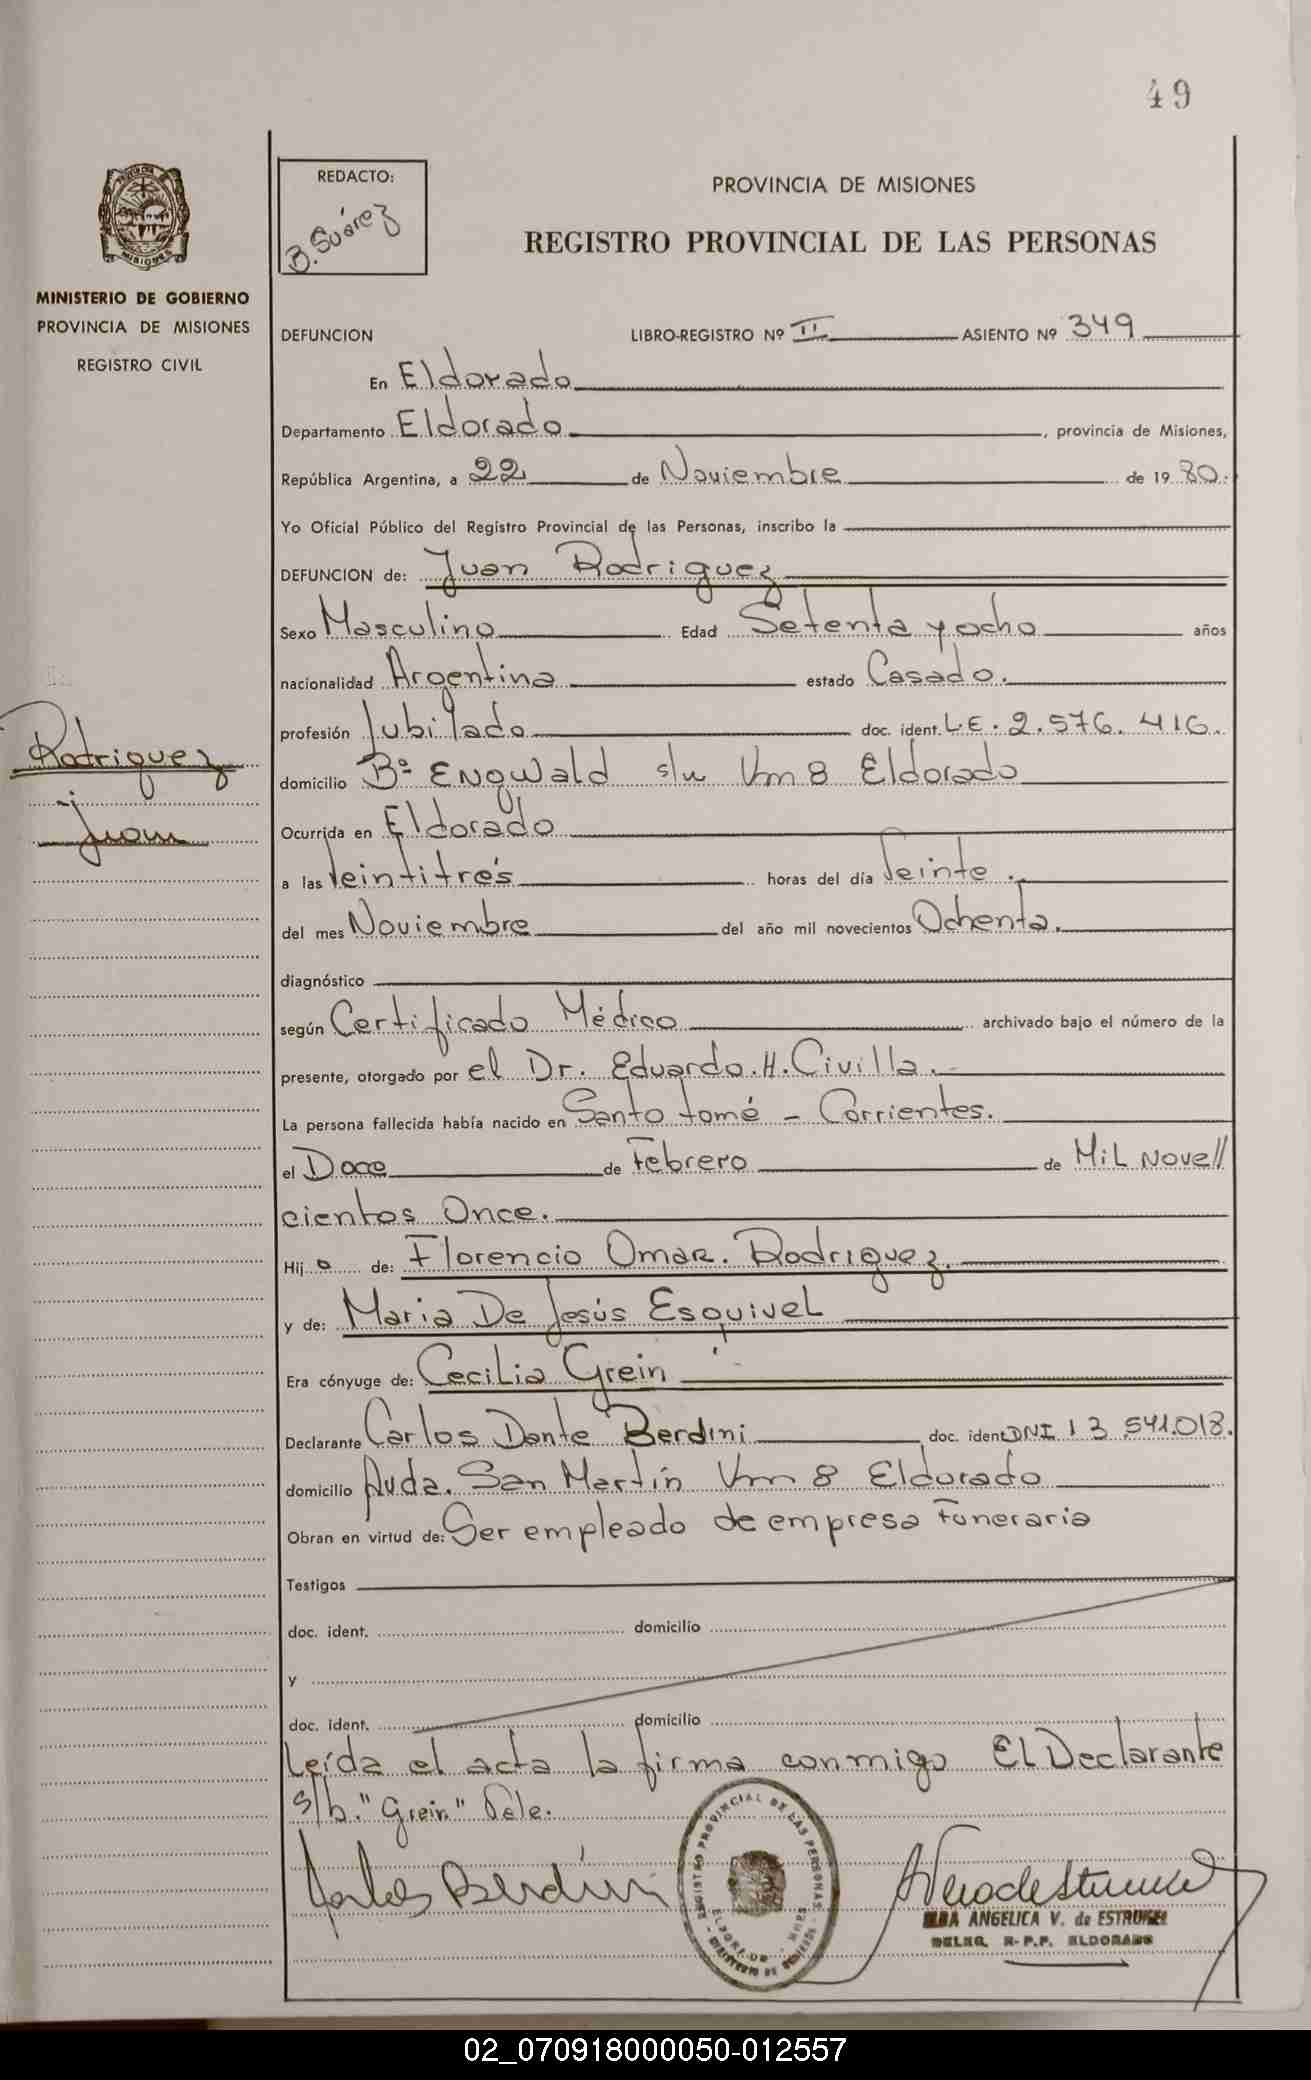 49
REDACTO:
B. Suárez
PROVINCIA DE MISIONES
REGISTRO PROVINCIAL DE LAS PERSONAS
MINISTERIO DE GOBIERNO
PROVINCIA DE MISIONES
REGISTRO CIVIL
DEFUNCION LIBRO-REGISTRO Nº II ASIENTO Nº 349
En Eldorado
Departamento Eldorado, provincia de Misiones,
República Argentina, a 22 de Noviembre de 19 80.
Yo Oficial Público del Registro Provincial de las Personas, inscribo la
DEFUNCION de: Juan Rodriguez
Sexo Masculino Edad Setenta y ocho años
nacionalidad Argentina estado Casado.
profesión Jubilado doc. ident. L.E. 2.576.416.
Rodriguez
Juan
domicilio Bº Engwald s/n Km 8 Eldorado
Ocurrida en Eldorado
a las Veintitrés horas del día Veinte.
del mes Noviembre del año mil novecientos Ochenta.
diagnóstico
según Certificado Médico archivado bajo el número de la
presente, otorgado por el Dr. Eduardo. H. Civilla.
La persona fallecida había nacido en Santo tomé - Corrientes.
el Doce de Febrero de Mil Nove//
cientos Once.
Hij o de: Florencio Omar. Rodriguez.
y de: Maria De Jesús Esquivel
Era cónyuge de: Cecilia Grein
Declarante Carlos Dante Berdini doc. ident. DNI 13.541.018.
domicilio Avda. San Martín Km 8 Eldorado
Obran en virtud de: Ser empleado de empresa Funeraria
Testigos
doc. ident. domicilio
y
doc. ident. domicilio
Leída el acta la firma conmigo El Declarante
s/b. "Grein" Vale.
Carlos Berdini
REGISTRO PROVINCIAL DE LAS PERSONAS
ELDORADO - MNES
MINISTERIO DE GOBIERNO
ELBA ANGELICA V. de ESTRUMEL
DELEG. R.P.P. ELDORADO
02_070918000050-012557